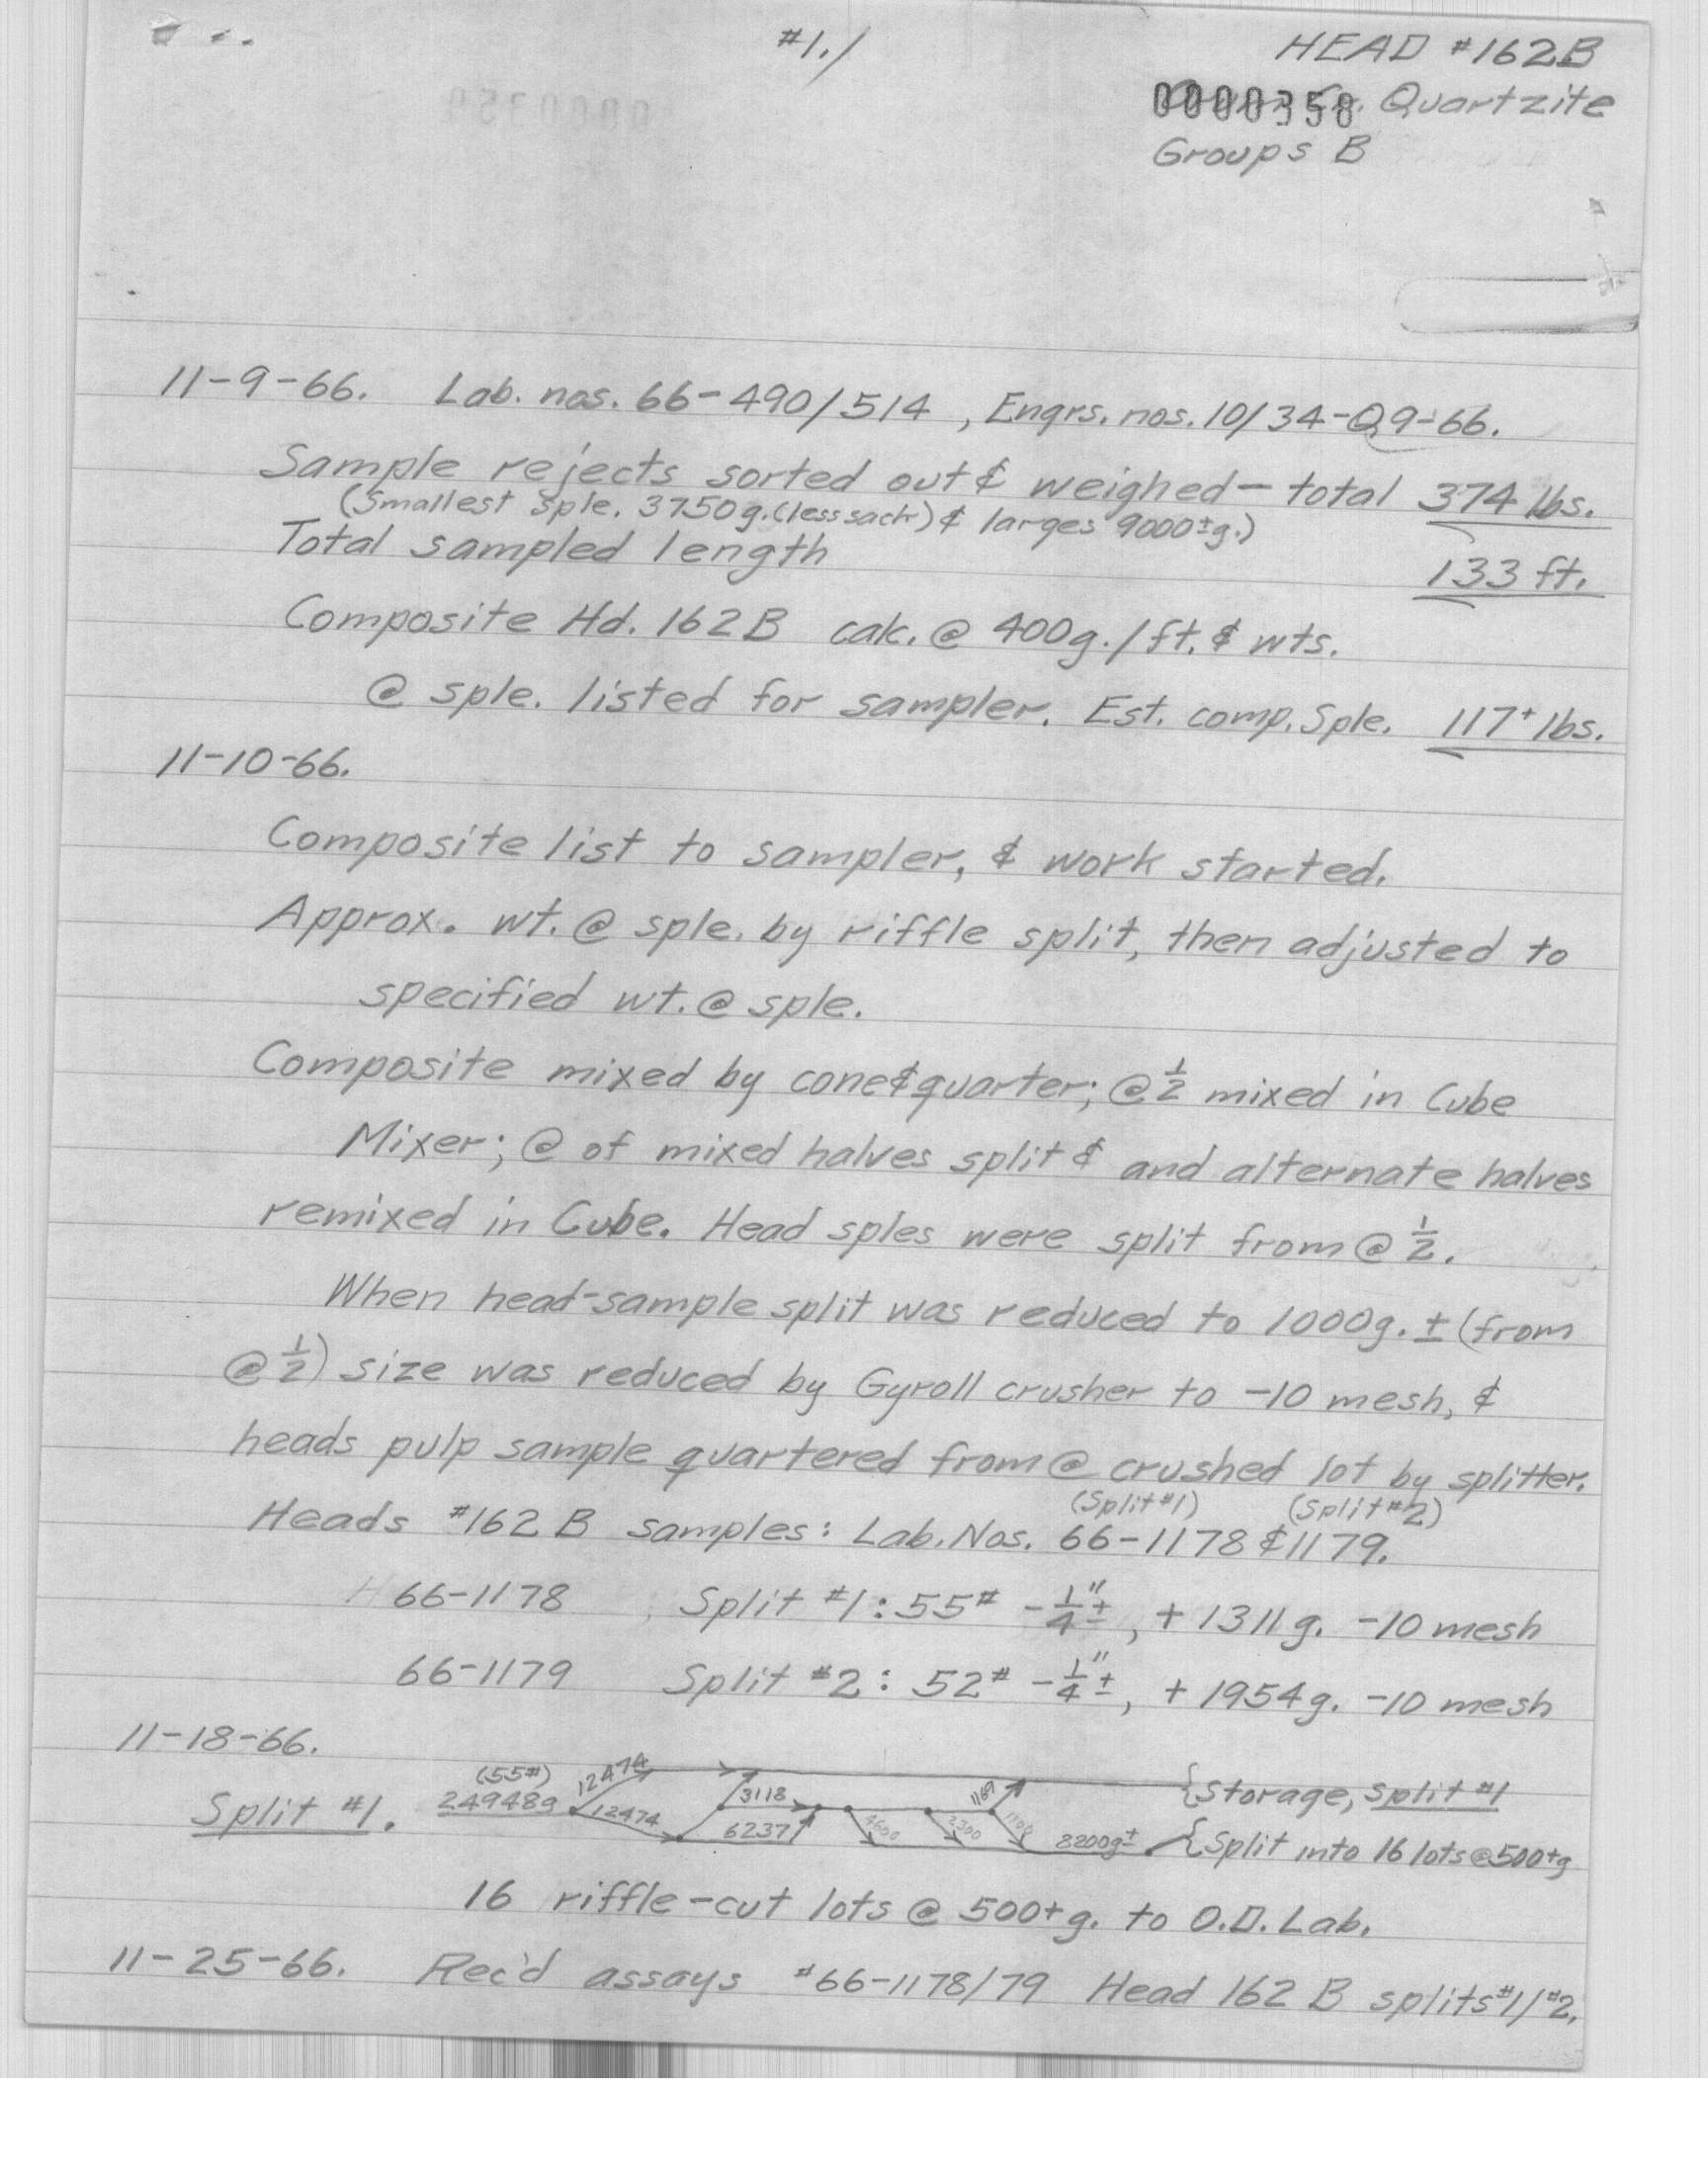 #1./
HEAD #162B
0000358 Quartzite
Groups B
11-9-66. Lab. nos. 66-490/514, Engrs. nos. 10/34-Q9-66.
Sample rejects sorted out & weighed - total 374 lbs.
(Smallest Sple. 3750g. (less sack) & larges 9000±g.)
Total sampled length 133 ft.
Composite Hd. 162B calc. @ 400g./ft. & wts.
@ sple. listed for sampler. Est. comp. Sple. 117+ lbs.
11-10-66.
Composite list to sampler, & work started.
Approx. wt. @ sple. by riffle split, then adjusted to
specified wt. @ sple.
Composite mixed by cone & quarter; @ 1/2 mixed in Cube
Mixer; @ of mixed halves split & and alternate halves
remixed in Cube. Head sples were split from @ 1/2.
When head-sample split was reduced to 1000g. ± (from
@ 1/2) size was reduced by Gyroll crusher to -10 mesh, &
heads pulp sample quartered from @ crushed lot by splitter.
(Split #1) (Split #2)
Heads #162 B samples: Lab. Nos. 66-1178 & 1179.
66-1178 Split #1: 55# -1/4"±, + 1311g. -10 mesh
66-1179 Split #2: 52# -1/4"±, + 1954g. -10 mesh
11-18-66.
Split #1. (55#) 24948g 12474 12474 3118 6237 4600 2300 8200g± {Storage, Split #1
{Split into 16 lots @ 500+g
16 riffle-cut lots @ 500+g. to O.D. Lab.
11-25-66. Rec'd assays #66-1178/79 Head 162 B splits #1/#2.